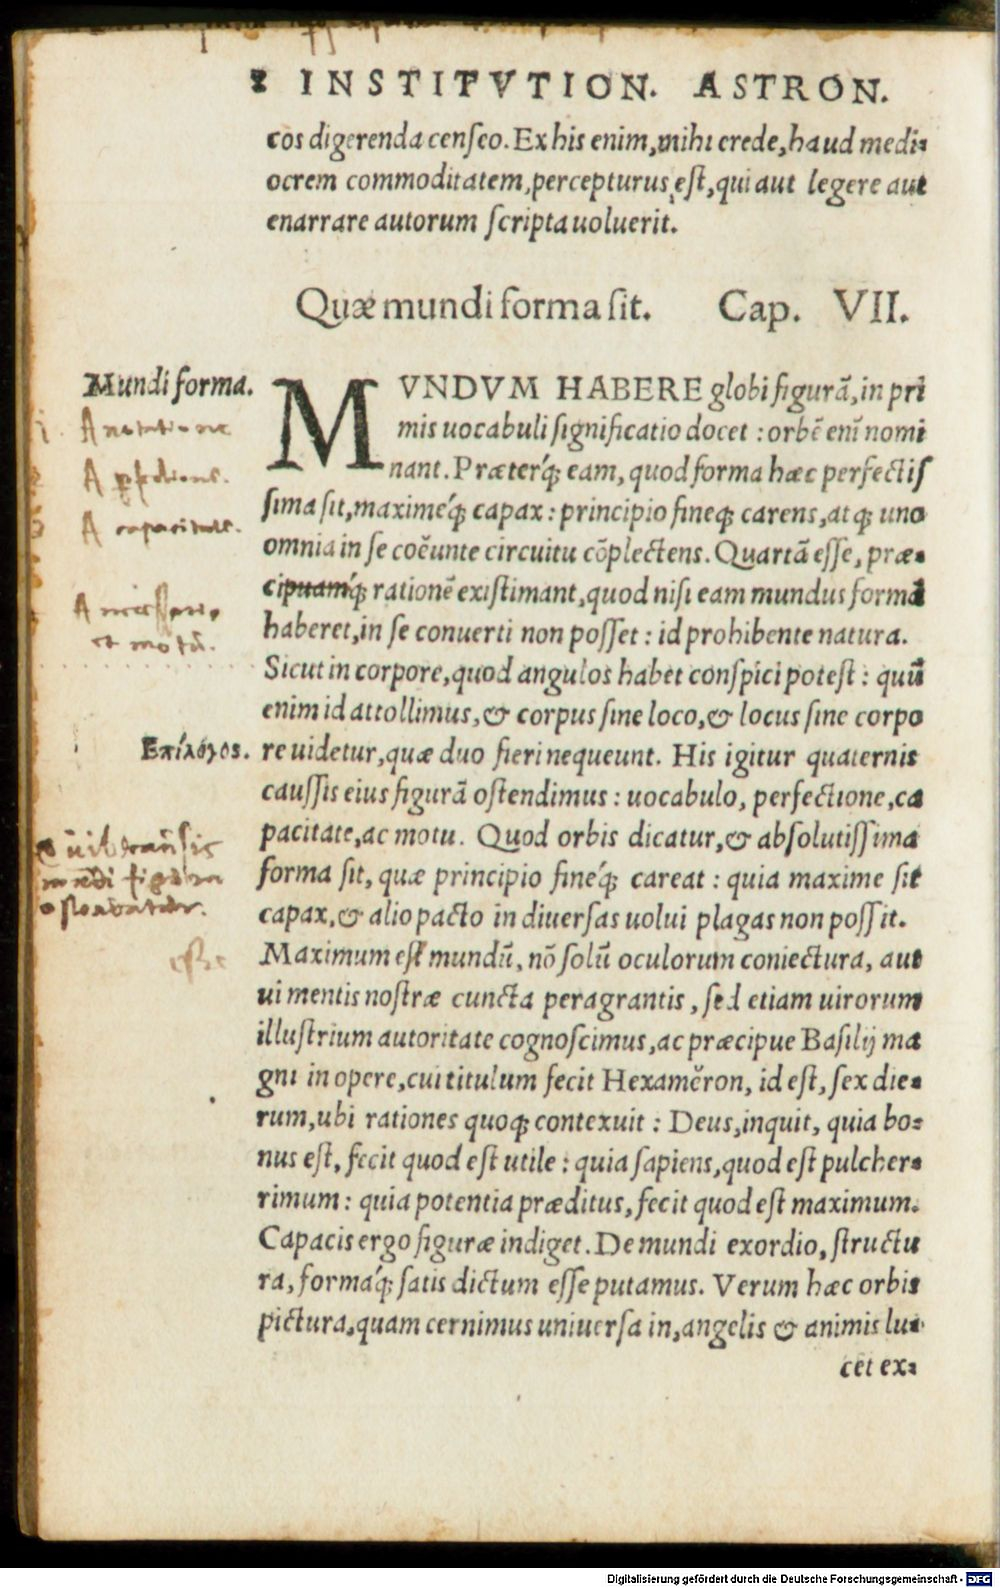 8 INSTITVTION. ASTRON.
cos digerenda censeo. Ex his enim, mihi crede, haud medi-
ocrem commoditatem, percepturus est, qui aut legere aut
enarrare autorum scripta uoluerit.
Quæ mundi forma sit. Cap. VII.
Mundi forma.
MVNDVM HABERE globi figurā, in pri
mis uocabuli significatio docet : orbē enī nomi
nant. Præterq́; eam, quod forma hæc perfectis
sima sit, maximeq́; capax : principio fineq; carens, atq; uno
omnia in se coëunte circuitu cōplectens. Quartā esse, præ-
cipuamq́; rationē existimant, quod nisi eam mundus formā
haberet, in se conuerti non posset : id prohibente natura.
Sicut in corpore, quod angulos habet conspici potest : quū
enim id attollimus, & corpus sine loco, & locus sine corpo
Επίλογος.
re uidetur, quæ duo fieri nequeunt. His igitur quaternis
caussis eius figurā ostendimus : uocabulo, perfectione, ca
pacitate, ac motu. Quod orbis dicatur, & absolutissima
forma sit, quæ principio fineq́; careat : quia maxime sit
capax, & alio pacto in diuersas uolui plagas non possit.
Maximum est mundū, nō solū oculorum coniectura, aut
ui mentis nostræ cuncta peragrantis, sed etiam uirorum
illustrium autoritate cognoscimus, ac præcipue Basilij ma
gni in opere, cui titulum fecit Hexamëron, id est, sex die-
rum, ubi rationes quoq; contexuit : Deus, inquit, quia bo-
nus est, fecit quod est utile : quia sapiens, quod est pulcher-
rimum : quia potentia præditus, fecit quod est maximum.
Capacis ergo figuræ indiget. De mundi exordio, structu
ra, formaq́; satis dictum esse putamus. Verum hæc orbis
pictura, quam cernimus uniuersa in, angelis & animis lu-
cet ex-
A notatione
A perfectione.
A capacitate.
et motū.
Digitalisierung gefördert durch die Deutsche Forschungsgemeinschaft - DFG